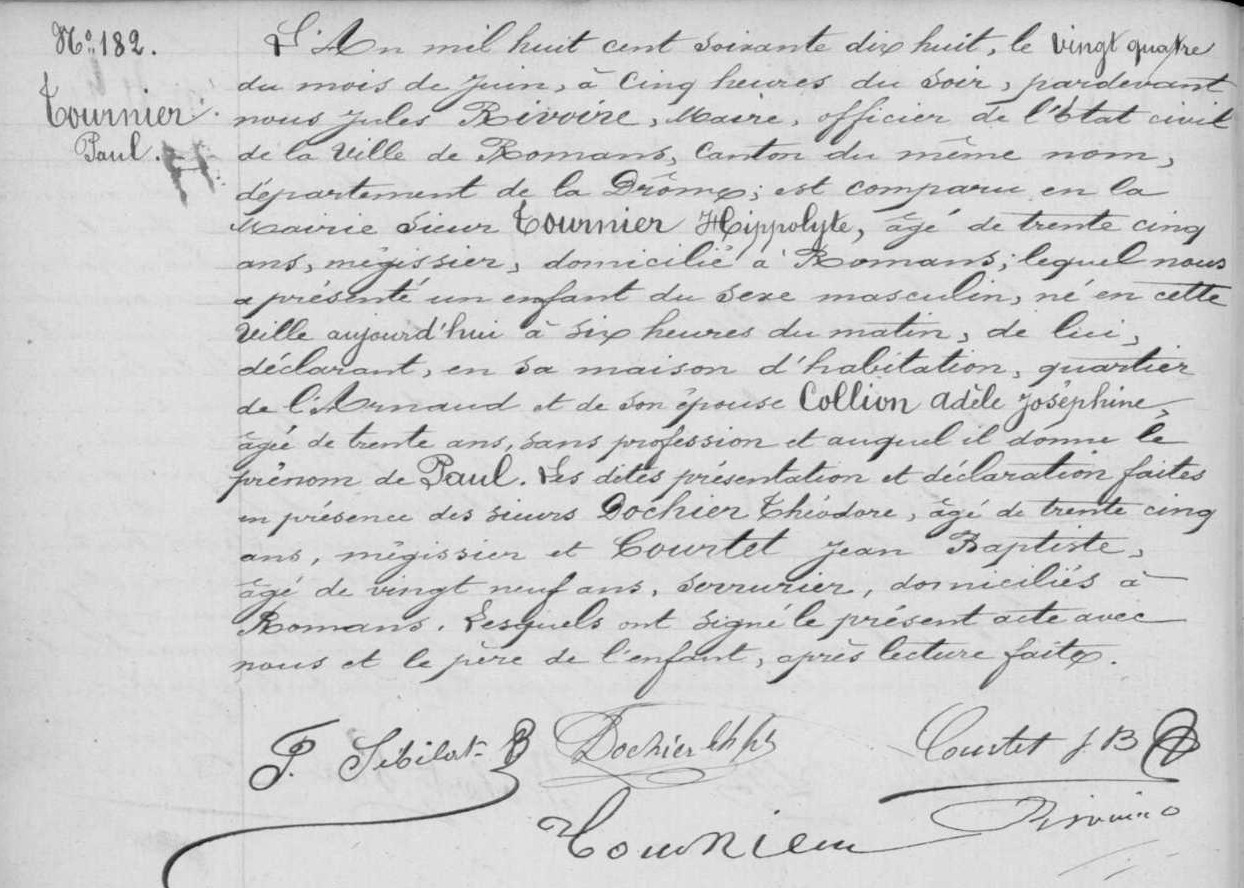 N° 182.
Tournier
Paul.
L'An mil huit cent soixante dix huit, le vingt quatre
du mois de Juin, à cinq heures du soir, pardevant
nous Jules Rivoire, Maire, officier de l'Etat civil
de la Ville de Romans, Canton du même nom,
département de la Drôme; est comparu en la
Mairie sieur Tournier Hippolyte, âgé de trente cinq
ans, mégissier, domicilié à Romans; lequel nous
a présenté un enfant du sexe masculin, né en cette
Ville aujourd'hui à six heures du matin, de lui,
déclarant, en sa maison d'habitation, quartier
de l'Arnaud et de son épouse Collion Adèle Joséphine,
âgée de trente ans, sans profession et auquel il donne le
prénom de Paul. Les dites présentation et déclaration faites
en présence des sieurs Dochier Théodore, âgé de trente cinq
ans, mégissier et Courtet Jean Baptiste,
âgé de vingt neuf ans, serrurier, domiciliés à
Romans. Lesquels ont signé le présent acte avec
nous et le père de l'enfant, après lecture faite.
P. Sibilat Dochier Courtet J B
Tournier Rivoire